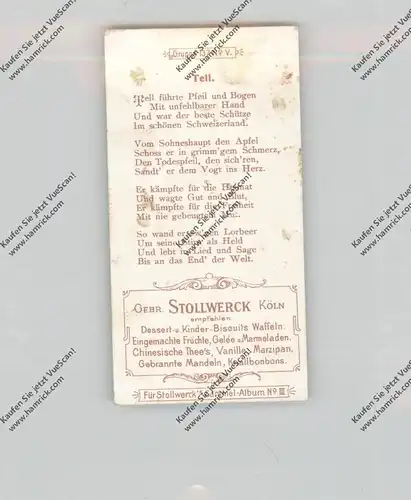 Tell.
Tell führte Pfeil und Bogen
Mit unfehlbarer Hand
Und war der beste Schütze
Im schönen Schweizerland.
Vom Sohneshaupt den Apfel
Schoss er in grimm'gem Schmerz,
Den Todespfeil, den sich'ren,
Sandt' er dem Vogt ins Herz.
Er kämpfte für die
Und wagte Gut und Blut,
Er kämpfte für die
Mit nie
So wand er Lorbeer
Um seine als Held
Und lebt in Lied und Sage
Bis an das End' der Welt.
GEBR. STOLLWERCK KÖLN
empfehlen
Dessert- u. Kinder-Biscuits Waffeln.
Eingemachte Früchte, Gelée u. Marmeladen.
Chinesische Thee's, Vanille, Marzipan.
Gebrannte Mandeln, Knallbonbons.
Für Stollwerck's Album No III
Kaufen Sie jetzt VueScan!
www.hamrick.com
Kaufen Sie jetzt VueScan!
www.hamrick.com
Kaufen Sie jetzt VueScan!
www.hamrick.com
Kaufen Sie jetzt VueScan!
www.hamrick.com
Kaufen Sie jetzt VueScan!
www.hamrick.com
Kaufen Sie jetzt VueScan!
www.hamrick.com